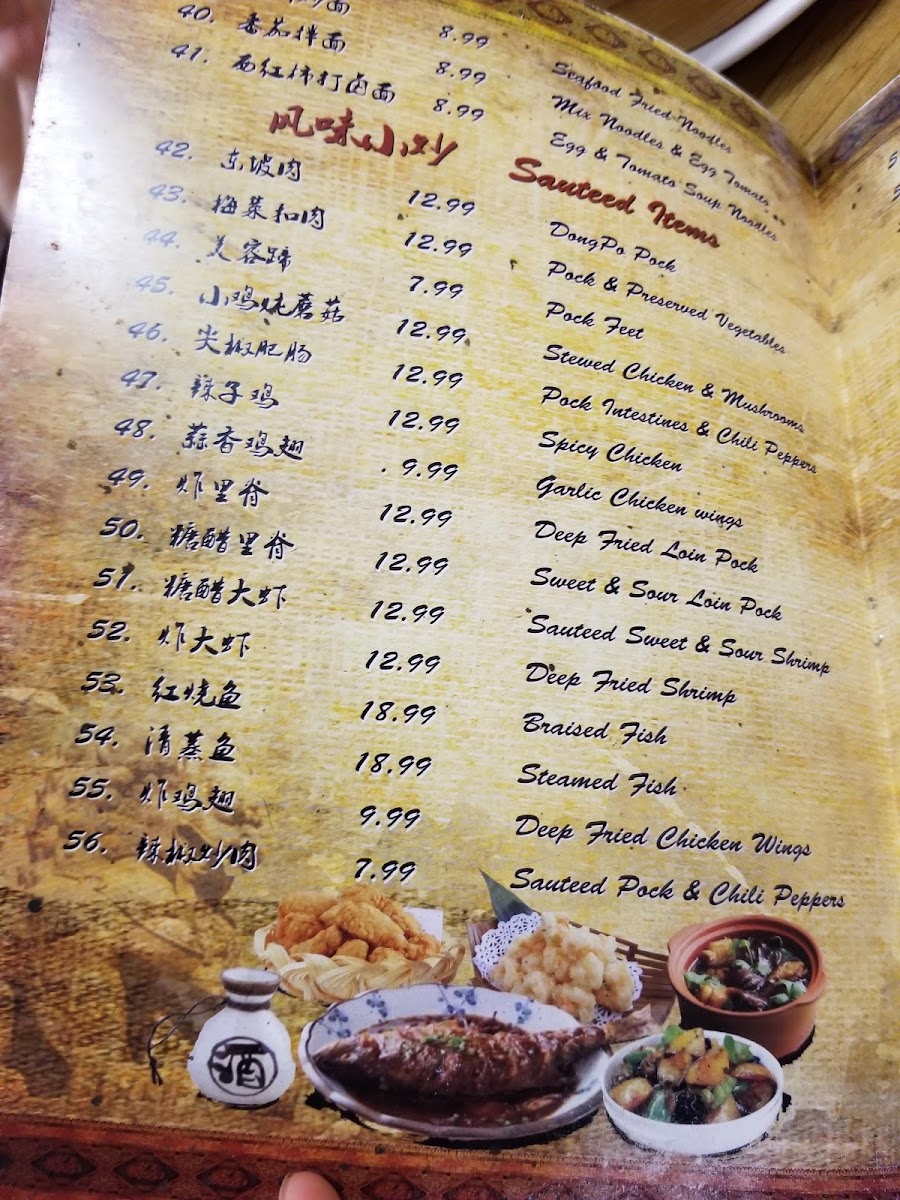 面 8.99 Seafood Fried Noodles
40. 番茄拌面 8.99 Mix Noodles & Egg Tomato
41. 西红柿打卤面 8.99 Egg & Tomato Soup Noodles
风味小炒 Sauteed Items
42. 东坡肉 12.99 DongPo Pock
43. 梅菜扣肉 12.99 Pock & Preserved Vegetables
44. 美容蹄 7.99 Pock Feet
45. 小鸡炖蘑菇 12.99 Stewed Chicken & Mushrooms
46. 尖椒肥肠 12.99 Pock Intestines & Chili Peppers
47. 辣子鸡 12.99 Spicy Chicken
48. 蒜香鸡翅 9.99 Garlic Chicken wings
49. 炸里脊 12.99 Deep Fried Loin Pock
50. 糖醋里脊 12.99 Sweet & Sour Loin Pock
51. 糖醋大虾 12.99 Sauteed Sweet & Sour Shrimp
52. 炸大虾 12.99 Deep Fried Shrimp
53. 红烧鱼 18.99 Braised Fish
54. 清蒸鱼 18.99 Steamed Fish
55. 炸鸡翅 9.99 Deep Fried Chicken Wings
56. 辣椒炒肉 7.99 Sauteed Pock & Chili Peppers
酒